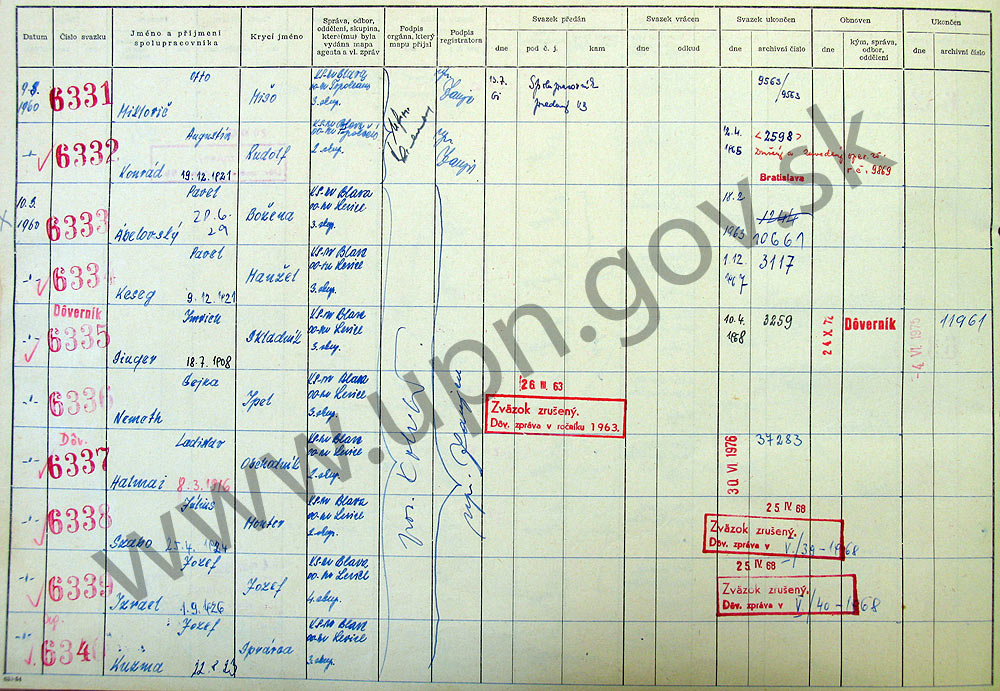 Datum
Číslo svazku
Jméno a příjmení spolupracovníka
Krycí jméno
Správa, odbor, oddělení, skupina, které(mu) byla vydána mapa agenta a vl. zpráv
Podpis orgána, který mapu přijal
Podpis registratora
Svazek předán
dne
pod č. j.
kam
Svazek vrácen
dne
odkud
Svazek ukončen
dne
archivní číslo
Obnoven
dne
kým, správa, odbor, oddělení
Ukončen
dne
archivní číslo
9.3. 1960
6331
Otto
Miklovič
Mišo
3. skup.
13.7.
Spolupracovník
predaný
9563/
9563
6332
Augustín
Konrád 19.12.1921
Rudolf
2. skup.
12.4.
1965
<2598>
r.č. 9869
Bratislava
10.3.
1960
6333
Pavel
28.6.
Abelovský 29
Božena
KS-MV Blava
OO-MV Levice
3. skup.
18.2
1963
1244
10661
6334
Pavel
Keseg 9.12.1921
Manžel
KS-MV Blava
OO-MV Levice
3. skup.
1.12.
1967
3117
Dôverník
6335
Imrich
Singer 18.7.1908
Skladník
KS-MV Blava
OO-MV Levice
3. skup.
10.4.
1968
3259
24 X. 72
Dôverník
-4 VI. 1975
11961
6336
Gejka
Nemeth
Ipel
KS-MV Blava
OO-MV Levice
3. skup.
26. III. 63
Zväzok zrušený.
Dôv. zpráva v ročníku 1963.
Dôv.
6337
Ladislav
Halmai 8.3.1916
Obchodník
KS-MV Blava
OO-MV Levice
2. skup.
30 VI 1976
37283
6338
Július
Szabo 25.4.1924
Monter
KS-MV Blava
OO-MV Levice
2. skup.
25 IV. 68
Zväzok zrušený.
Dôv. zpráva v V./39-1968
6339
Jozef
Izrael 1.9.1926
Jozef
KS-MV Blava
OO-MV Levice
4. skup.
25 IV. 68
Zväzok zrušený.
Dôv. zpráva v V/40-1968
6340
Jozef
Kuzma
Správca
KS-MV Blava
OO-MV Levice
3. skup.
www.upn.gov.sk